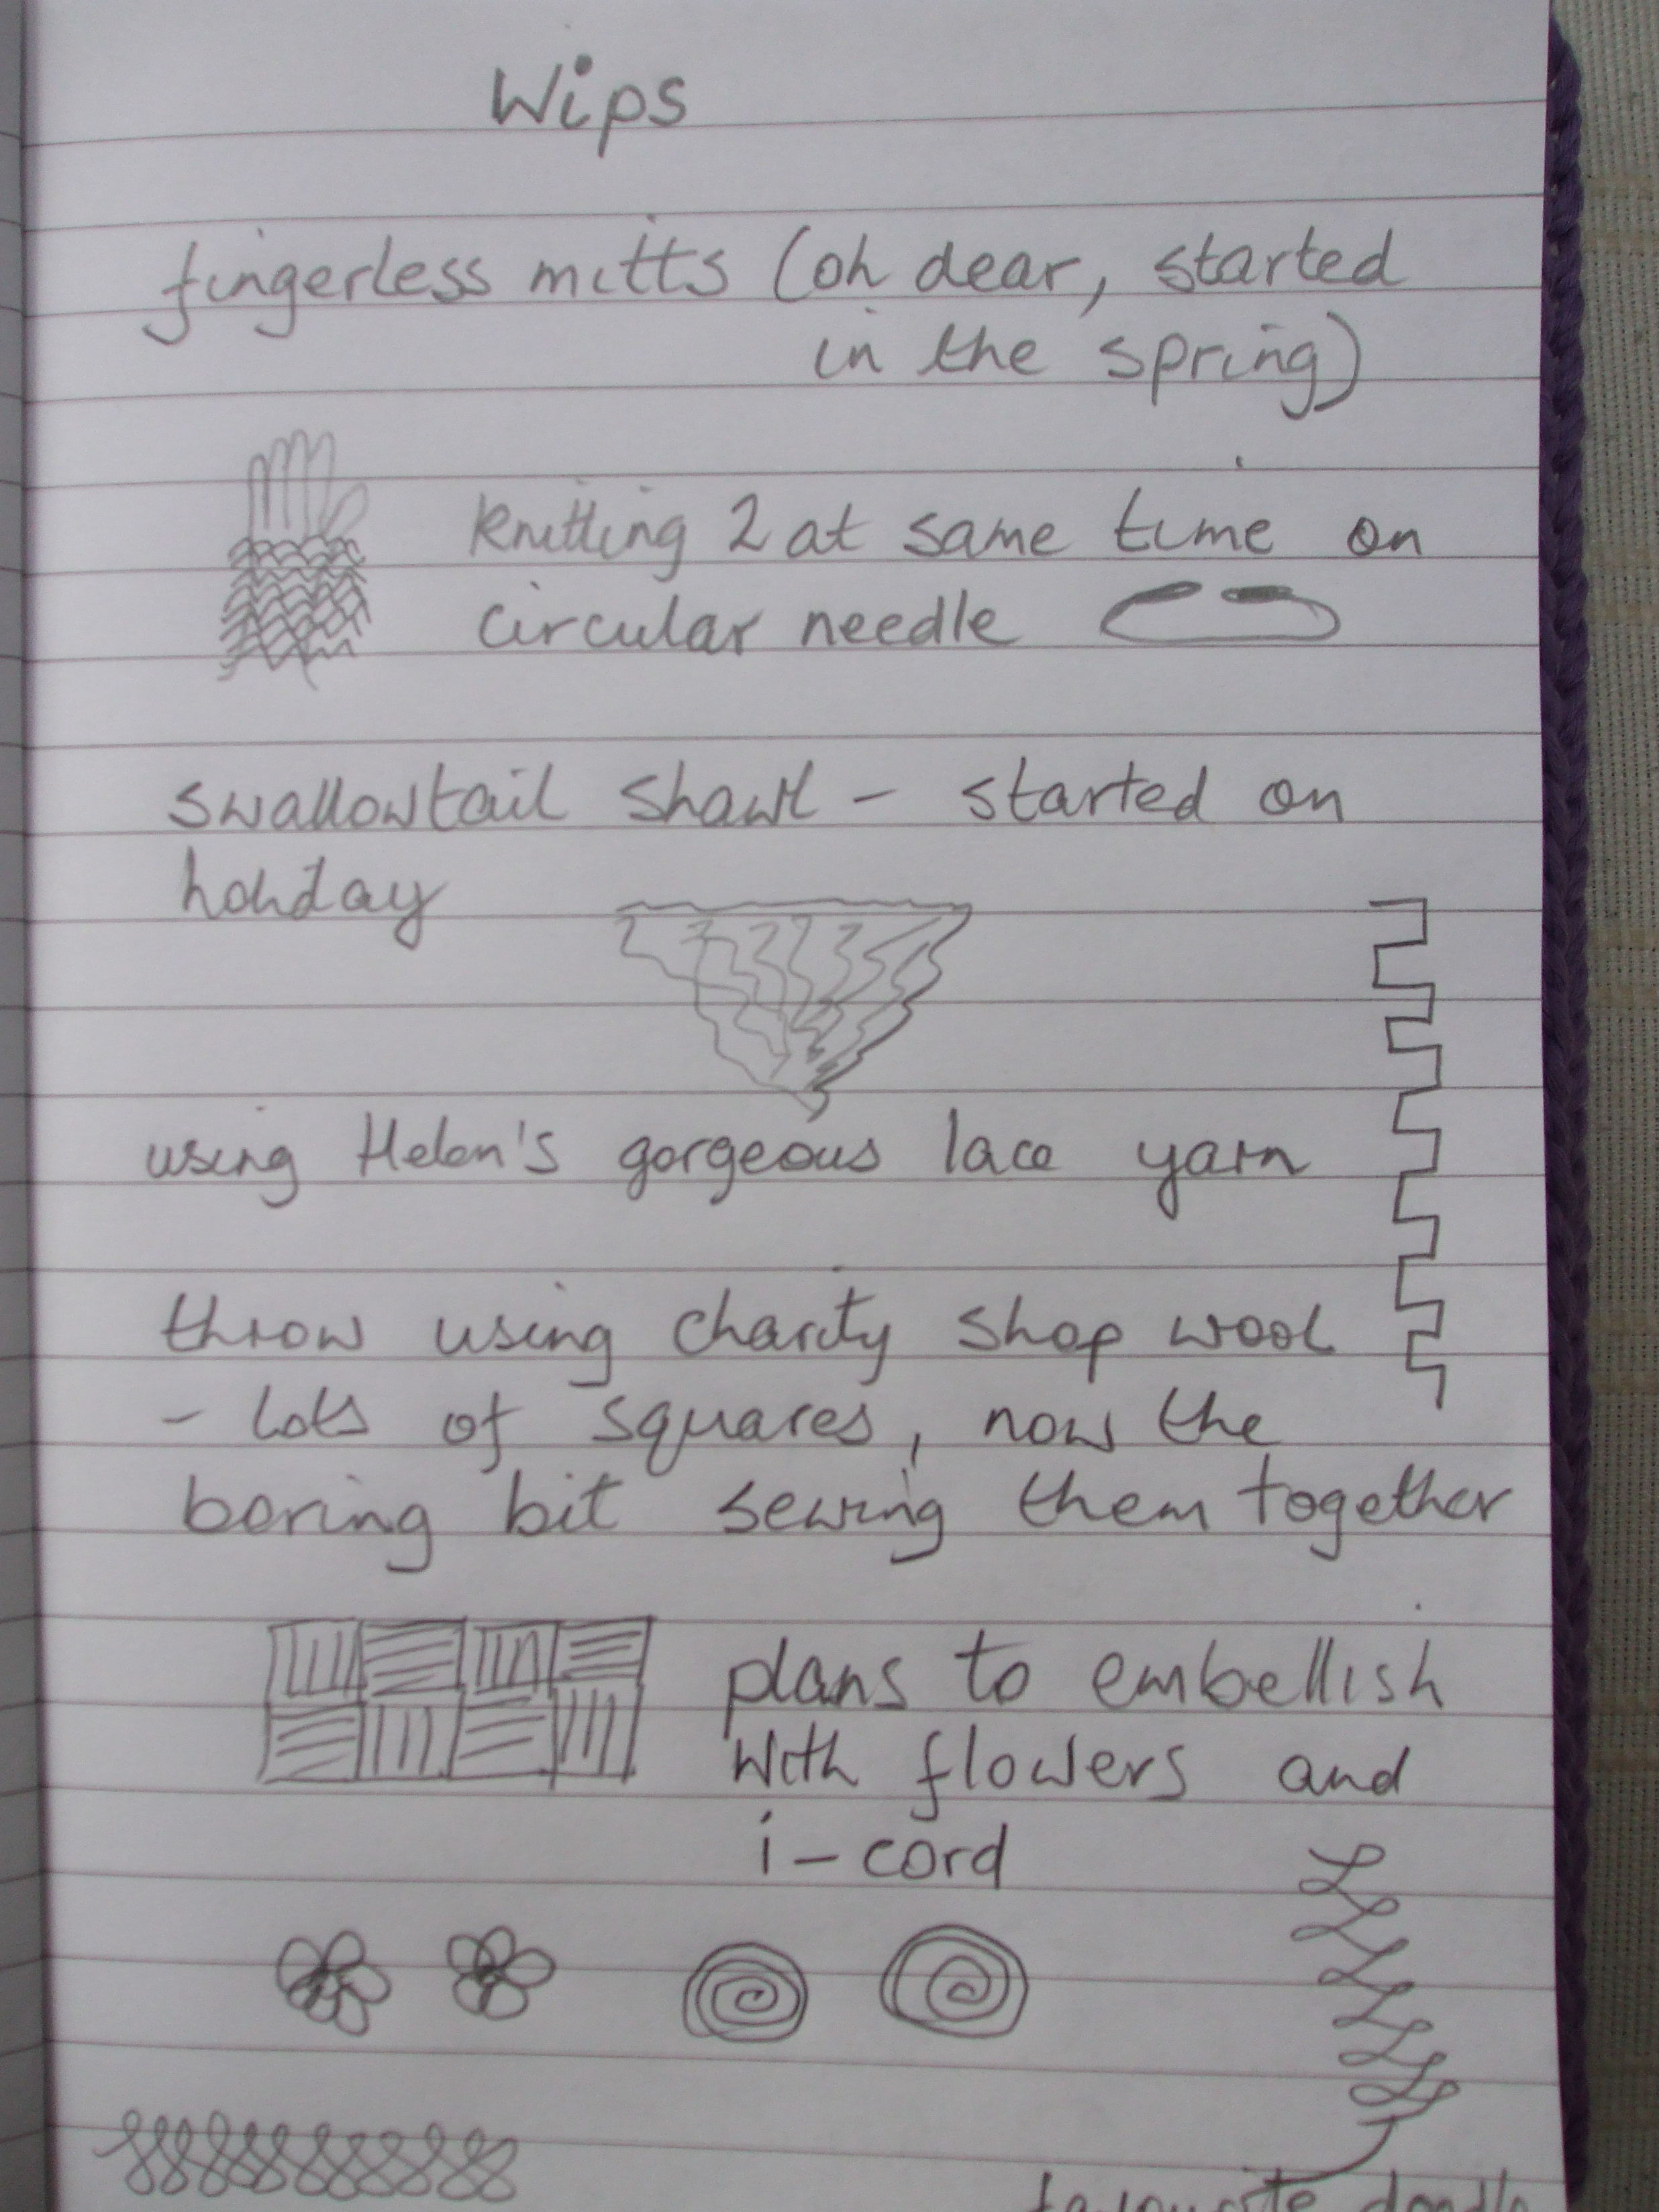 Wips
fingerless mitts (oh dear, started
in the spring)
knitting 2 at same time on
circular needle
swallowtail shawl - started on
holiday
using Helen's gorgeous lace yarn
throw using charity shop wool
- lots of squares, now the
boring bit sewing them together
plans to embellish
with flowers and
i-cord
favourite doodle